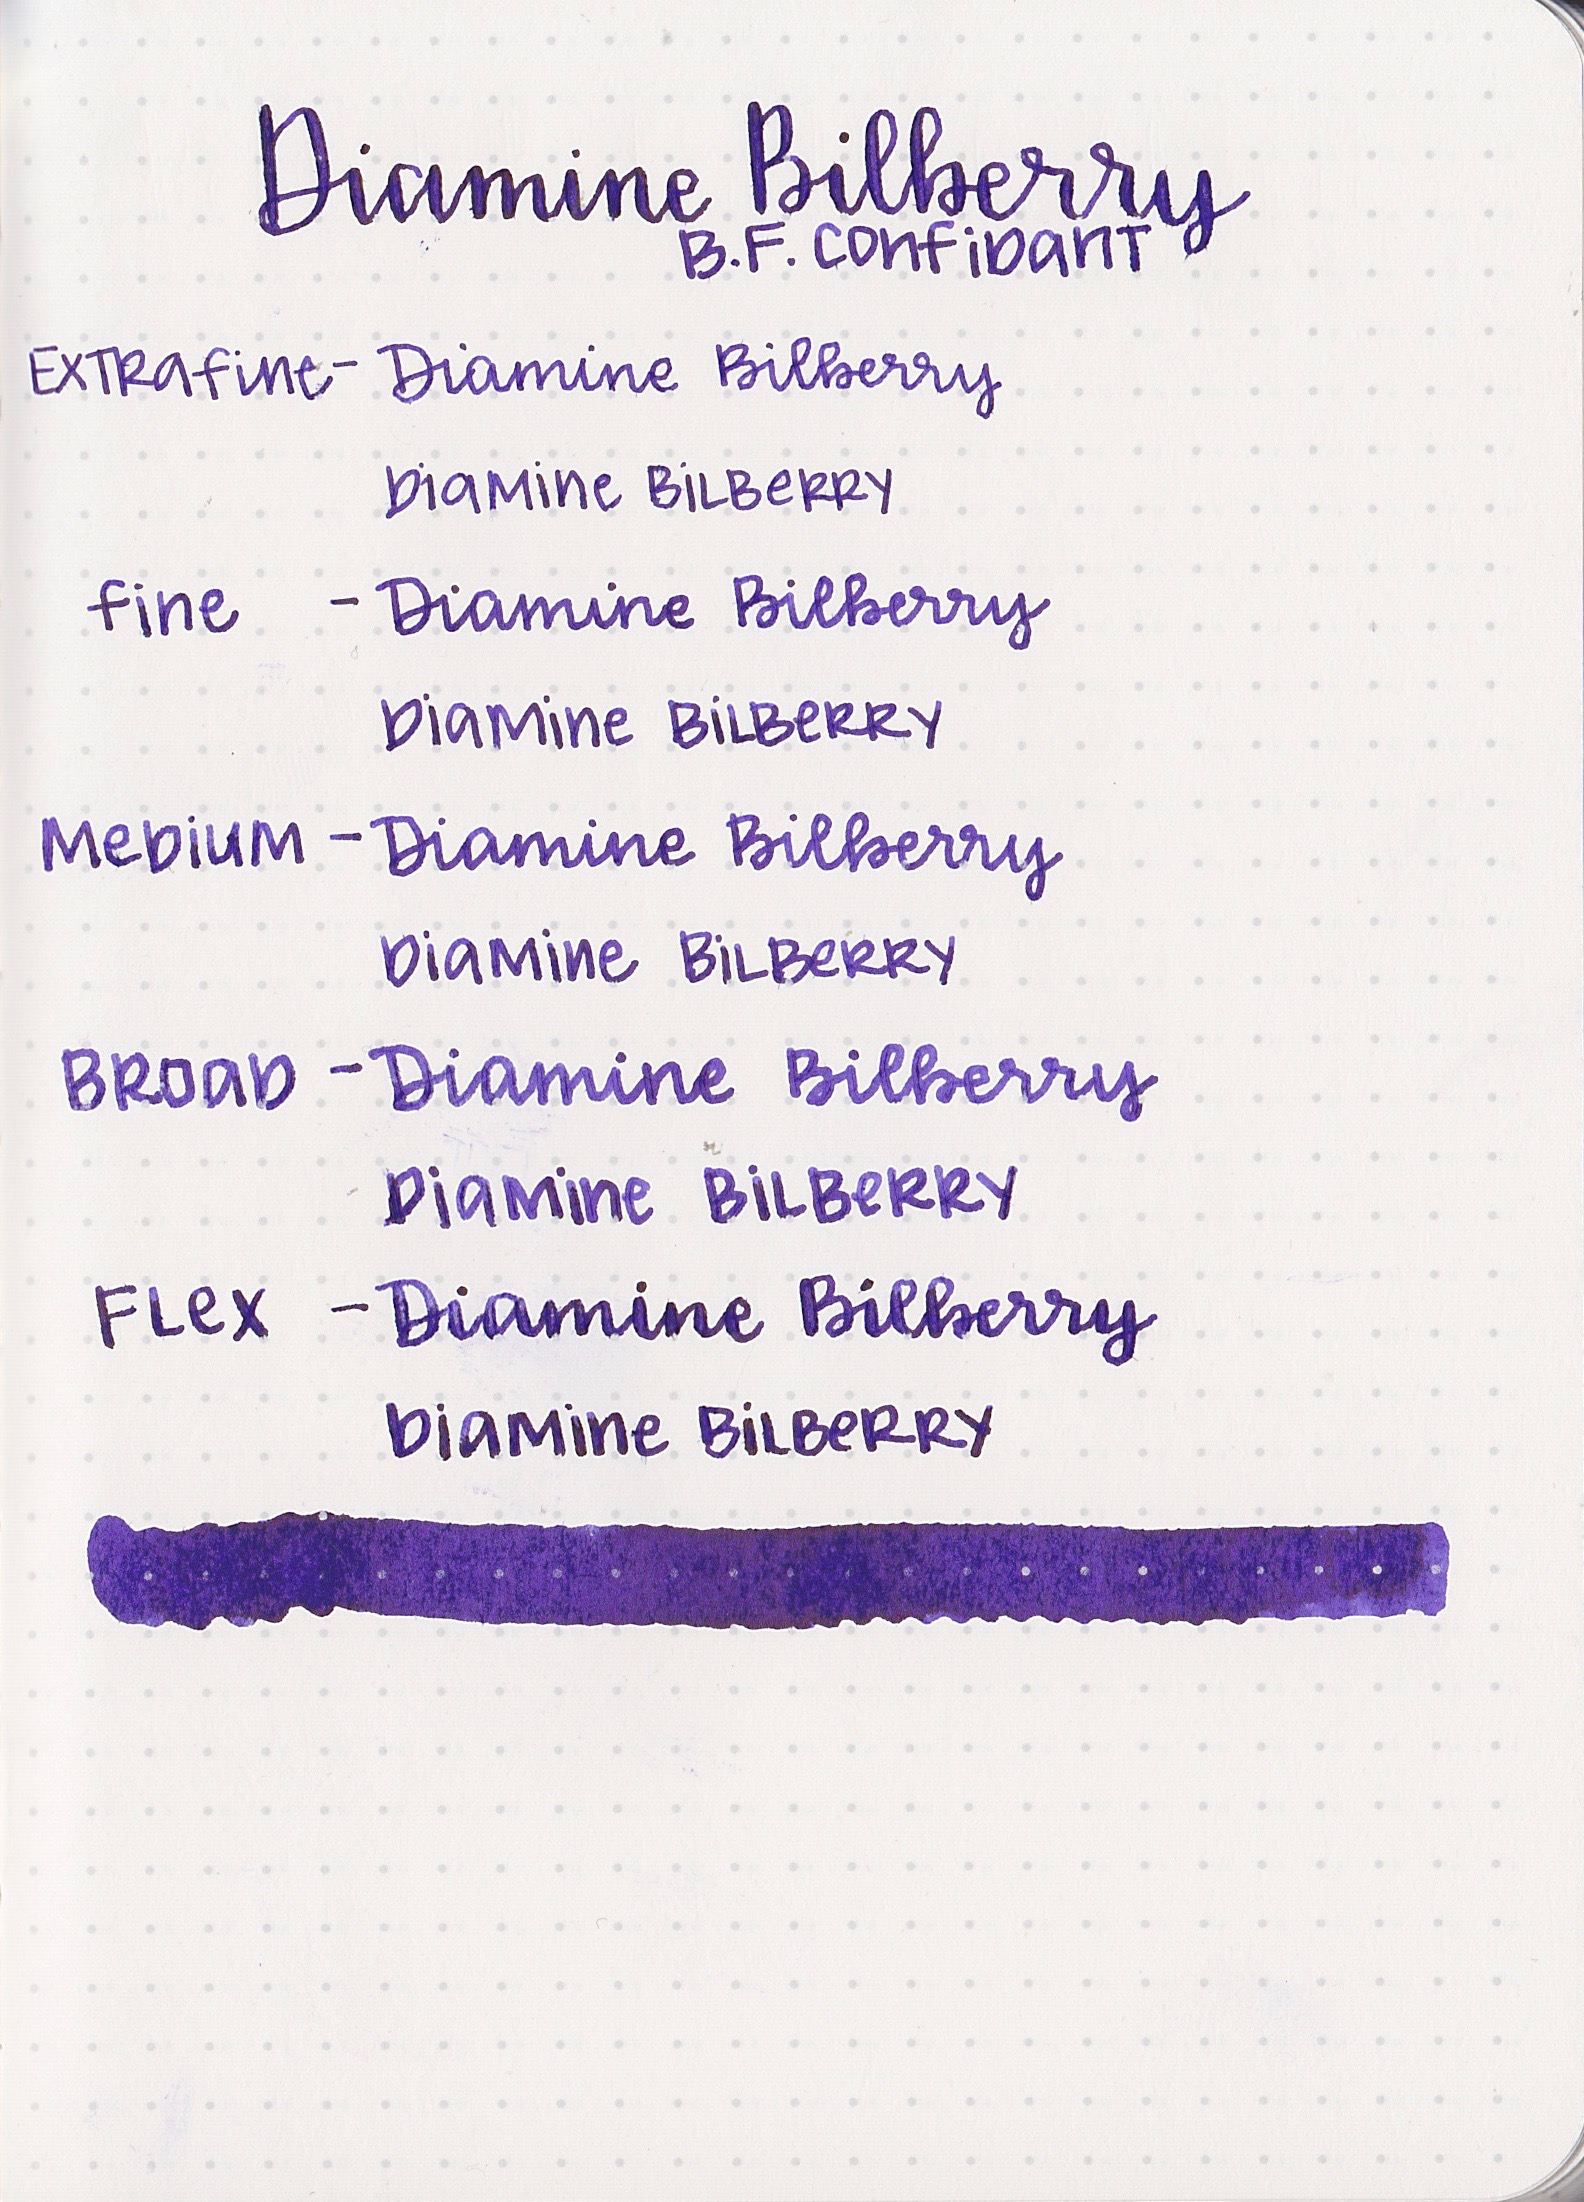 Diamine Bilberry
B.F. Confidant
Extra fine - Diamine Bilberry
Diamine Bilberry
fine - Diamine Bilberry
Diamine Bilberry
Medium - Diamine Bilberry
Diamine Bilberry
Broad - Diamine Bilberry
Diamine Bilberry
Flex - Diamine Bilberry
Diamine Bilberry